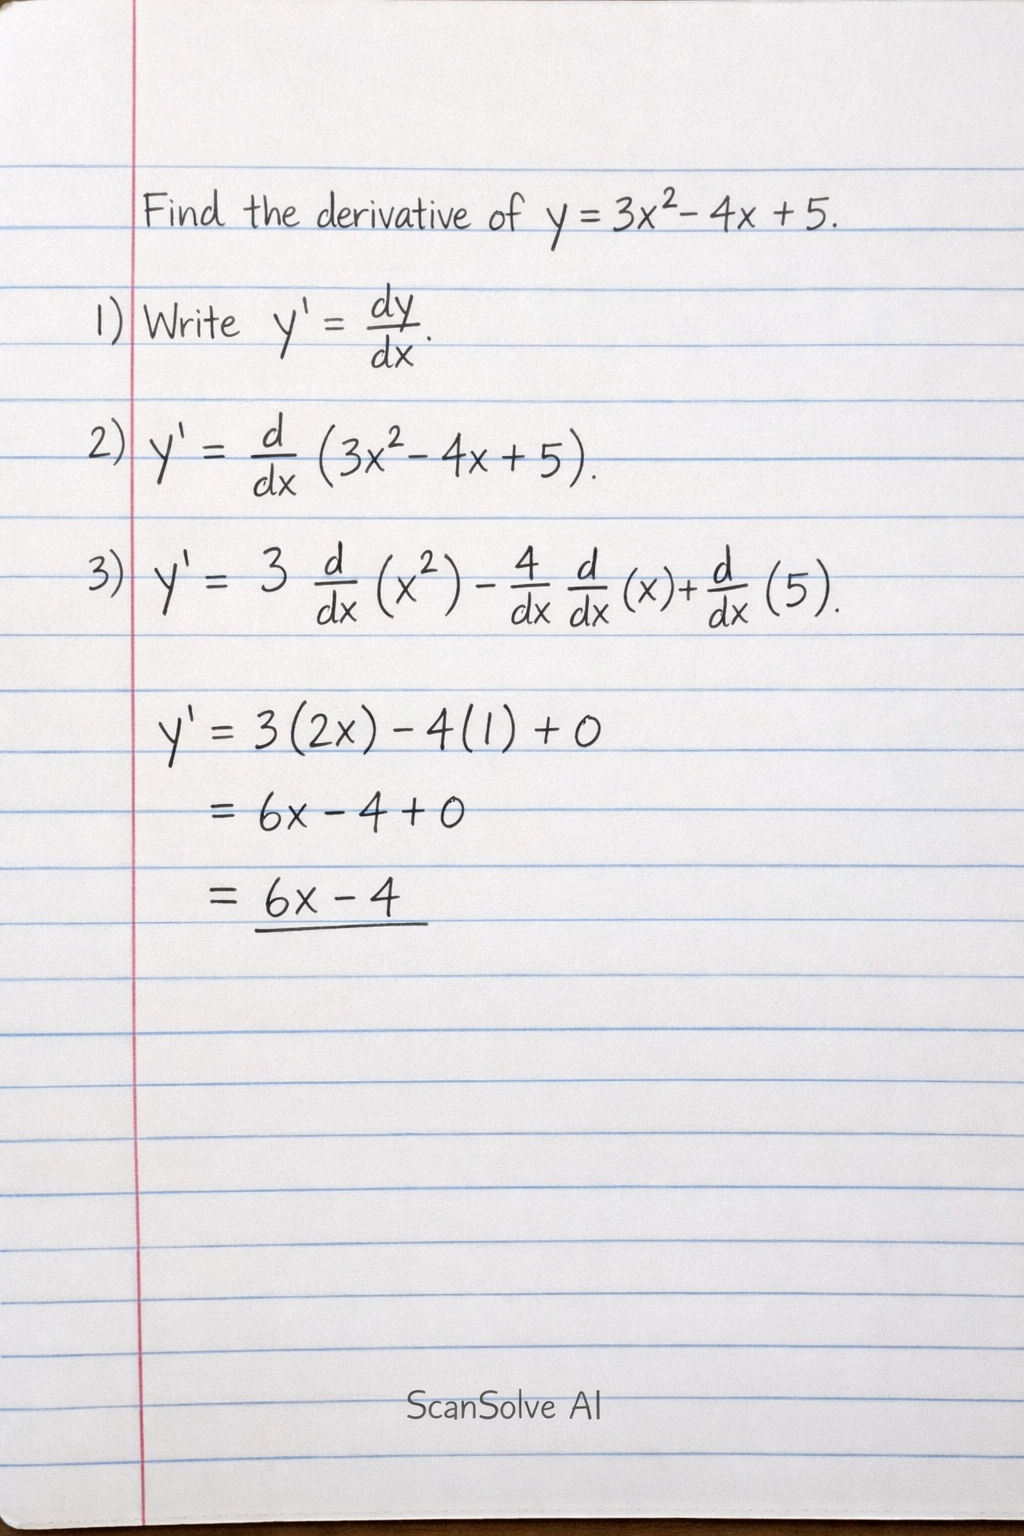 Find the derivative of y = 3x² - 4x + 5.
1) Write y' = dy/dx.
2) y' = d/dx (3x² - 4x + 5).
3) y' = 3 d/dx (x²) - 4/dx d/dx (x) + d/dx (5).
y' = 3(2x) - 4(1) + 0
= 6x - 4 + 0
= 6x - 4
ScanSolve AI